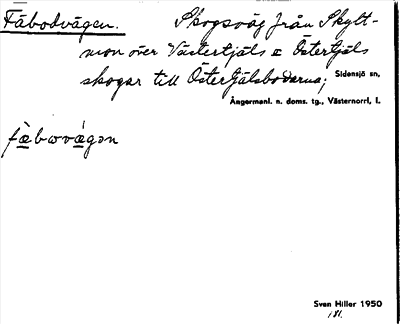 Fäbodvägen. Skogsväg från Skylt-
mon över Västertjäls o Östertjäls
skogar till Östertjälsbodarna; Sidensjö sn,
Ångermanl. n. doms. tg., Västernorrl. l.
fæ̀bωvǽgən
Sven Hiller 1950
181.